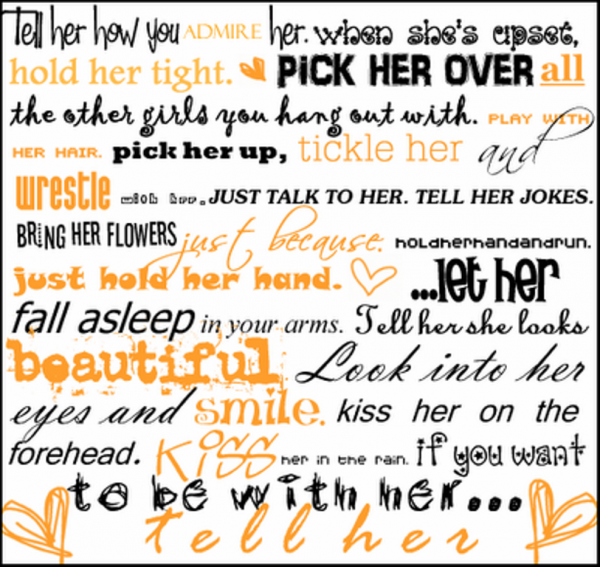 Tell her how you ADMIRE her. when she's upset,
hold her tight. PiCK HER OVER all
the other girls you hang out with. PLAY WITH
HER HAIR. pick her up, tickle her and
wrestle with her. JUST TALK TO HER. TELL HER JOKES.
BRiNG HER FLOWERS just because. holdherhandandrun.
just hold her hand. ...let her
fall asleep in your arms. Tell her she looks
beautiful Look into her
eyes and smile. kiss her on the
forehead. Kiss her in the rain. if you want
to be with her...
tell her